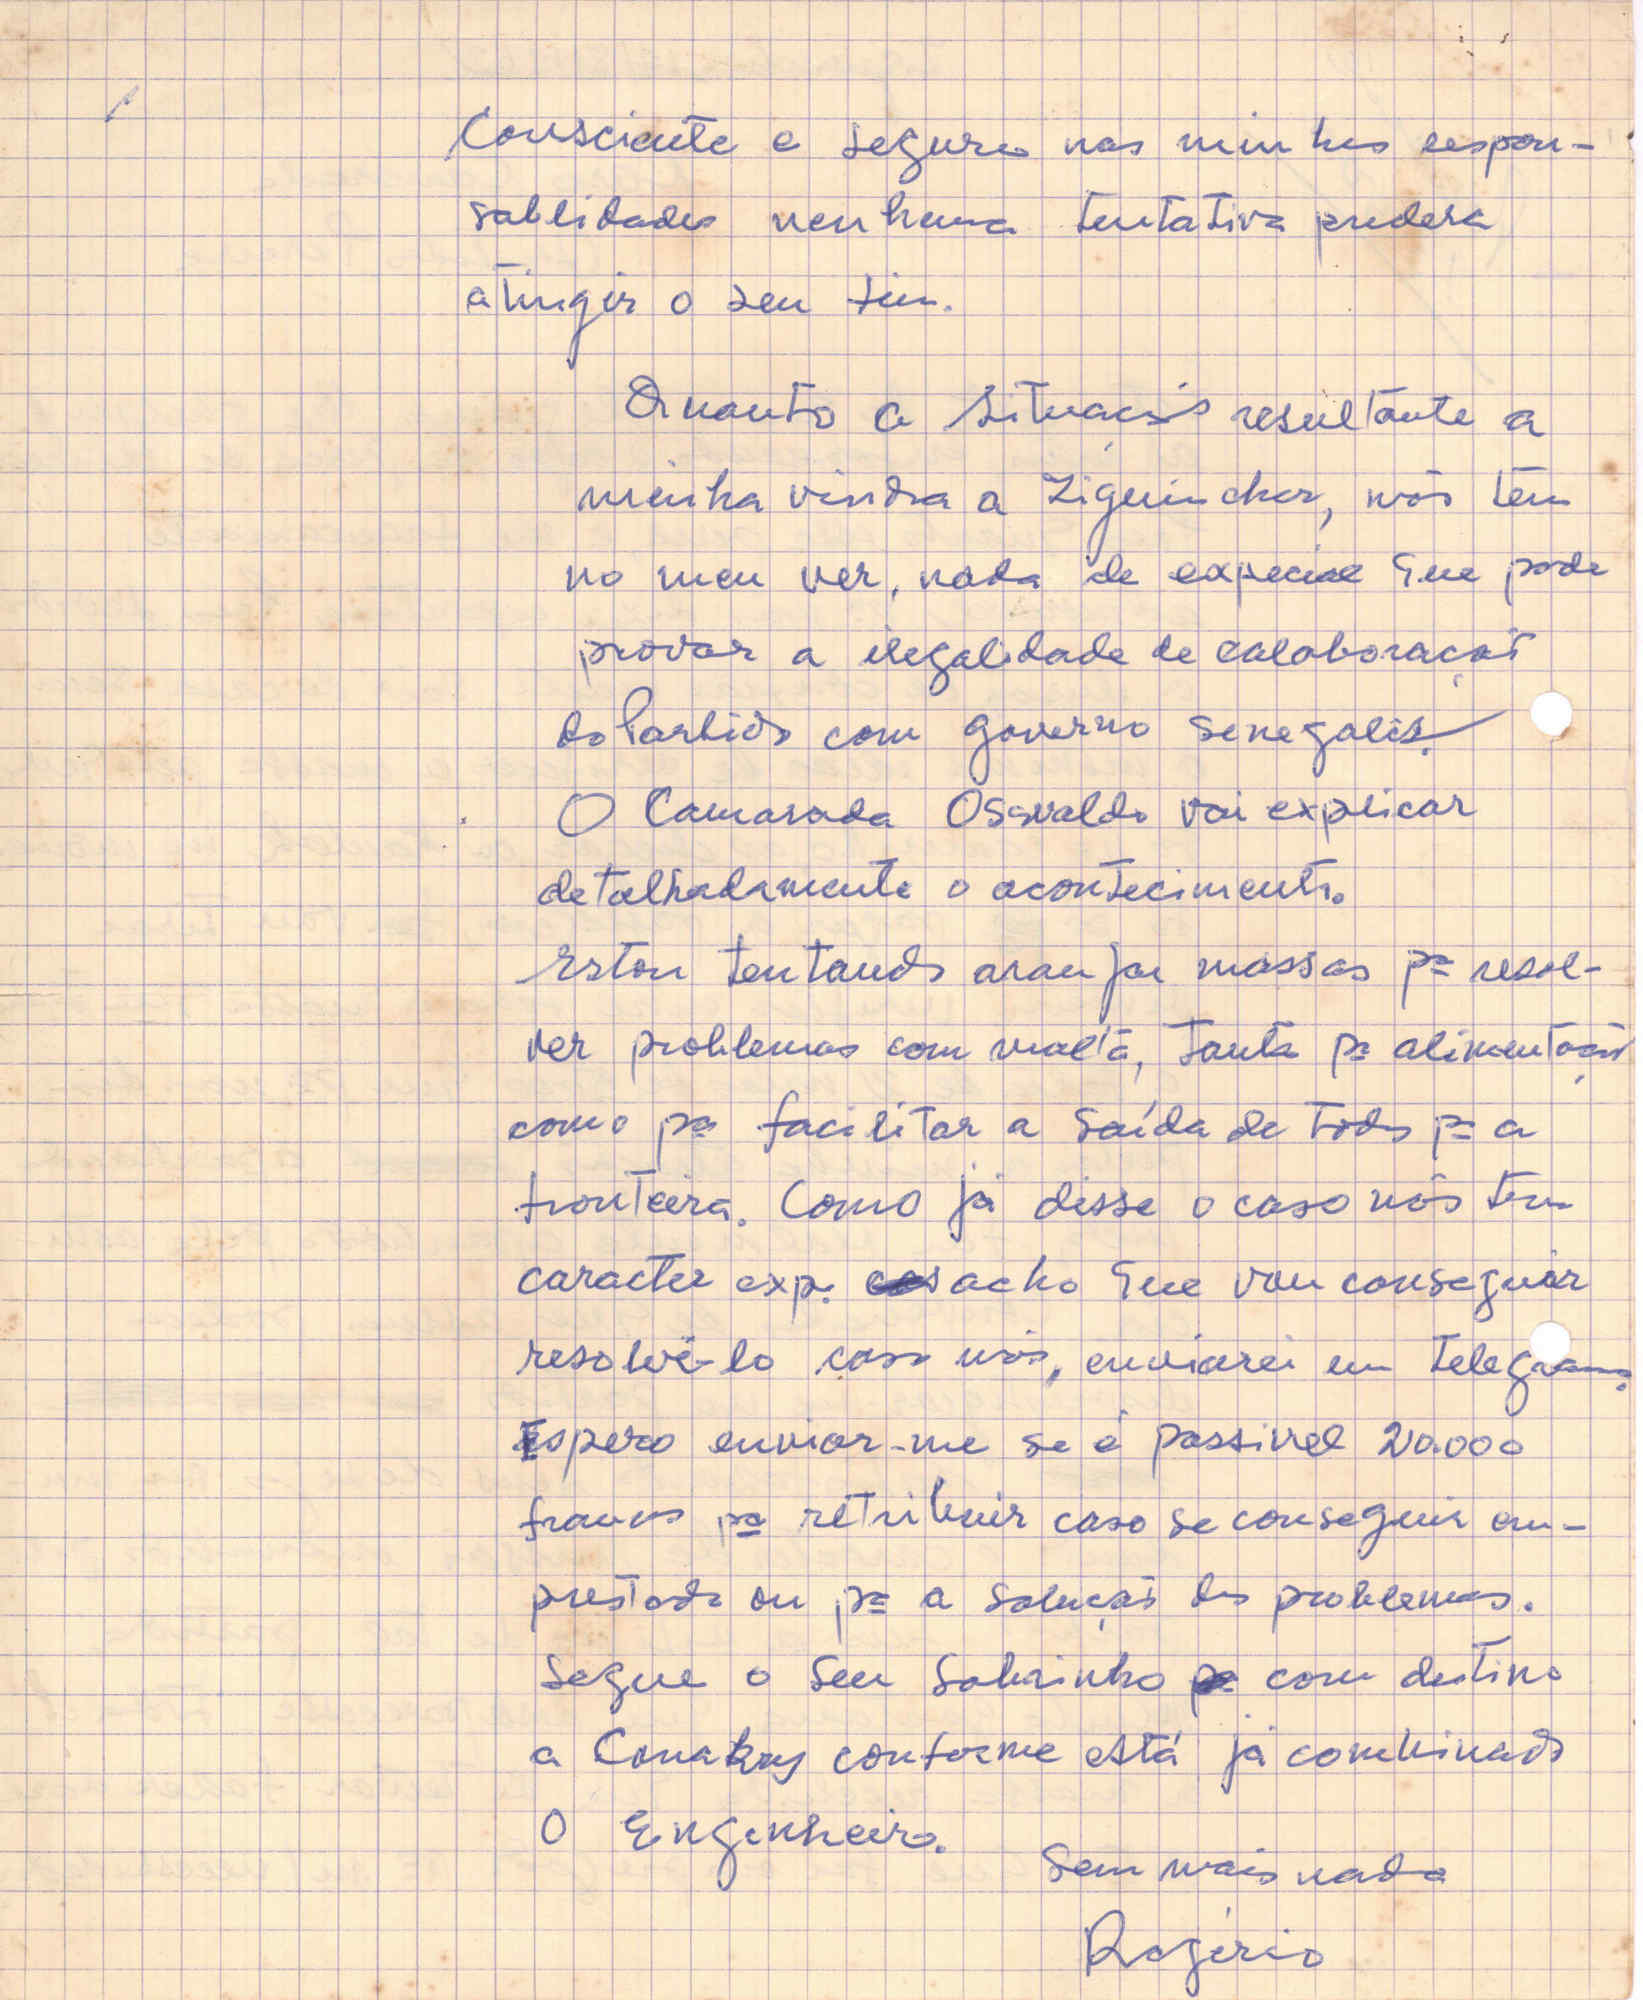 Consciente e seguro nas minhas respon-
sablidades nenhuma tentativa poderá
atingir o seu fim.
Quanto a situação resultante a
minha vinda a Ziguinchor, não tem
no meu ver, nada de especial que pode
provar a ilegalidade de calaboração
do Partido com governo senegalês.
O Camarada Osvaldo vai explicar
detalhadamente o acontecimento.
Estou tentando aranjar massas pa resol-
ver problemas com malta, tanto pa alimentação
como pa facilitar a saída de todos pa a
fronteira. Como já disse o caso não tem
caracter exp. acho que vou conseguir
resolvê-lo caso não, enviarei um telegrama.
Espero enviar-me se é possivel 20.000
francos pa retribuir caso se conseguir em-
prestado ou pa a solução dos problemas.
Segue o seu sobrinho com destino
a Conakry conforme está já combinado
O Engenheiro.
Sem mais nada
Rogério